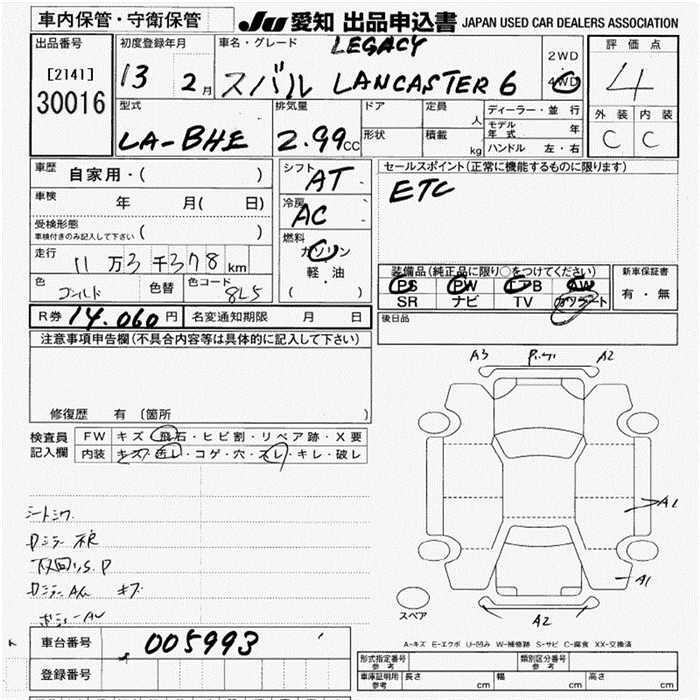 車内保管・守衛保管
JU 愛知 出品申込書 JAPAN USED CAR DEALERS ASSOCIATION
出品番号
[2141]
30016
初度登録年月
13 2月
車名・グレード
LEGACY
スバル LANCASTER 6
2WD
4WD
評価点
4
外装 内装
C C
型式
LA-BHE
排気量
2.99cc
ドア
形状
定員
人
積載
kg
ディーラー・並行
モデル年式 年
ハンドル 左・右
車歴
自家用・( )
車検
年 月( 日)
受検形態
車検付きのみ記入して下さい ( )
走行
11万3千378km
色
ゴールド
色替
色コード
8L5
シフト
AT
冷房
AC
燃料
ガソリン
軽・油
( )
セールスポイント(正常に機能するものに限ります)
ETC
装備品(純正品に限り○をつけてください)
PS PW エアB AW
SR ナビ TV カワシート
新車保証書
有・無
後日品
R券 14,060円
名変通知期限 月 日
注意事項申告欄(不具合内容等は具体的に記入して下さい)
修復歴 有 〔箇所 〕
検査員記入欄
FW キズ・飛石・ヒビ割・リペア跡・X要
内装 キズ・汚レ・コゲ・穴・スレ・キレ・破レ
シートシワ
A3 A2
A2
A1
A2
スペア
A-キズ E-エクボ U-凹み W-補修跡 S-サビ C-腐食 XX-交換済
車台番号
005993
登録番号
形式指定番号 参考
類別区分番号 参考
車庫証明用 参考
長さ cm
幅 cm
高さ cm